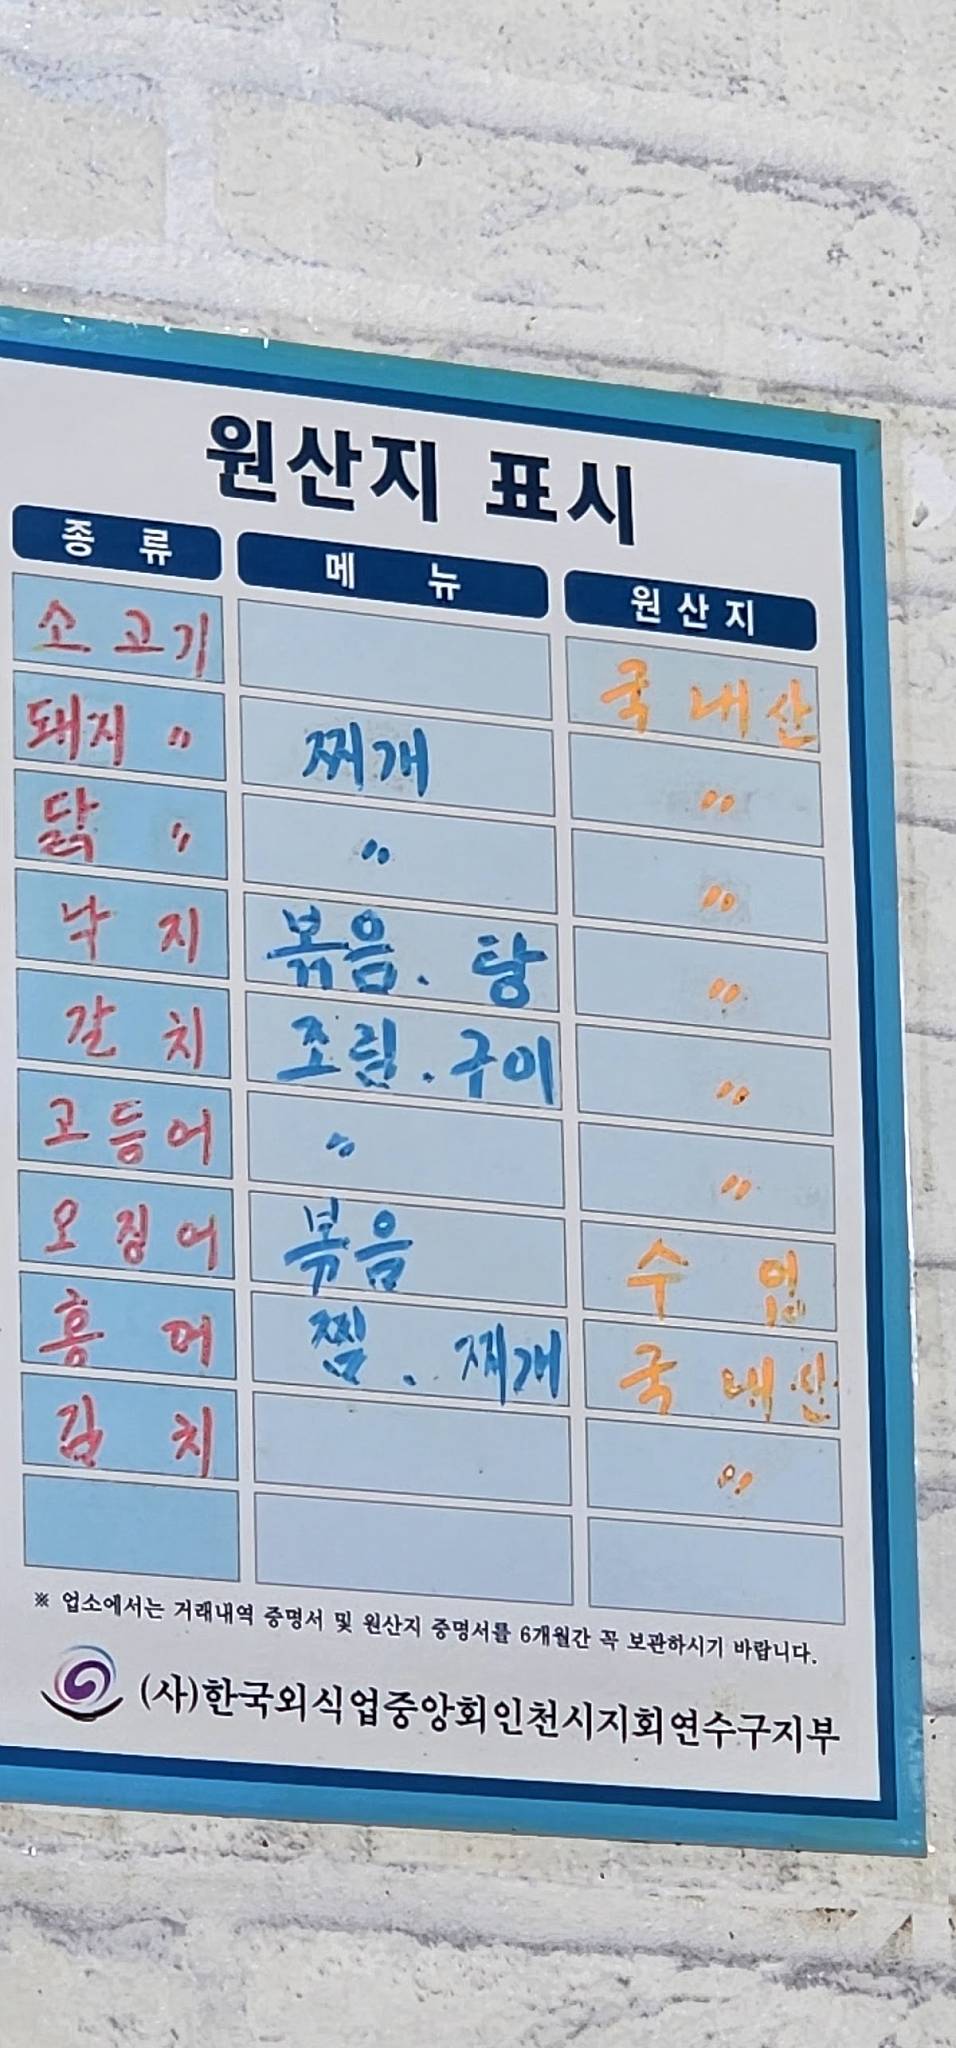 원산지 표시
종류 메뉴 원산지
소고기 국내산
돼지 〃 찌개 〃
닭 〃 〃 〃
낙지 볶음. 탕 〃
갈치 조림. 구이 〃
고등어 〃 〃
오징어 볶음 수입
홍어 찜. 찌개 국내산
김치 〃
※ 업소에서는 거래내역 증명서 및 원산지 증명서를 6개월간 꼭 보관하시기 바랍니다.
(사)한국외식업중앙회인천시지회연수구지부